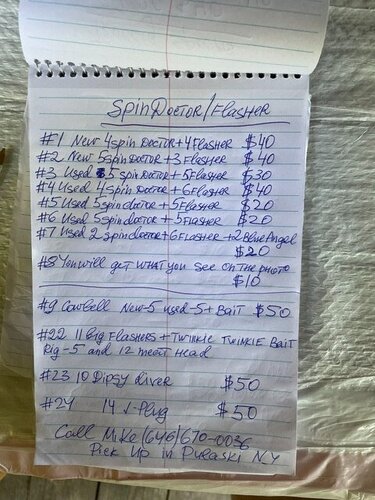 Spin Doctor/Flasher
#1 New 4 spin Doctor + 4 Flasher $40
#2 New 5 spin Doctor + 3 Flasher $40
#3 Used 5 spin Doctor + 5 Flasher $30
#4 Used 4 spin Doctor + 6 Flasher $40
#5 Used 5 spin doctor + 5 Flasher $20
#6 Used 5 spin doctor + 5 Flasher $20
#7 Used 2 spin doctor + 6 Flasher + 2 Blue Angel
$20
#8 You will get what you see on the photo
$10
#9 Cowbell New-5 used-5 + Bait $50
#22 11 big Flashers + Twinkie Twinkie Bait
Rig-5 and 12 meat Head
#23 10 Dipsy diver $50
#24 14 J-Plug $50
Call Mike (646) 670-0036
Pick Up in Pulaski N.Y